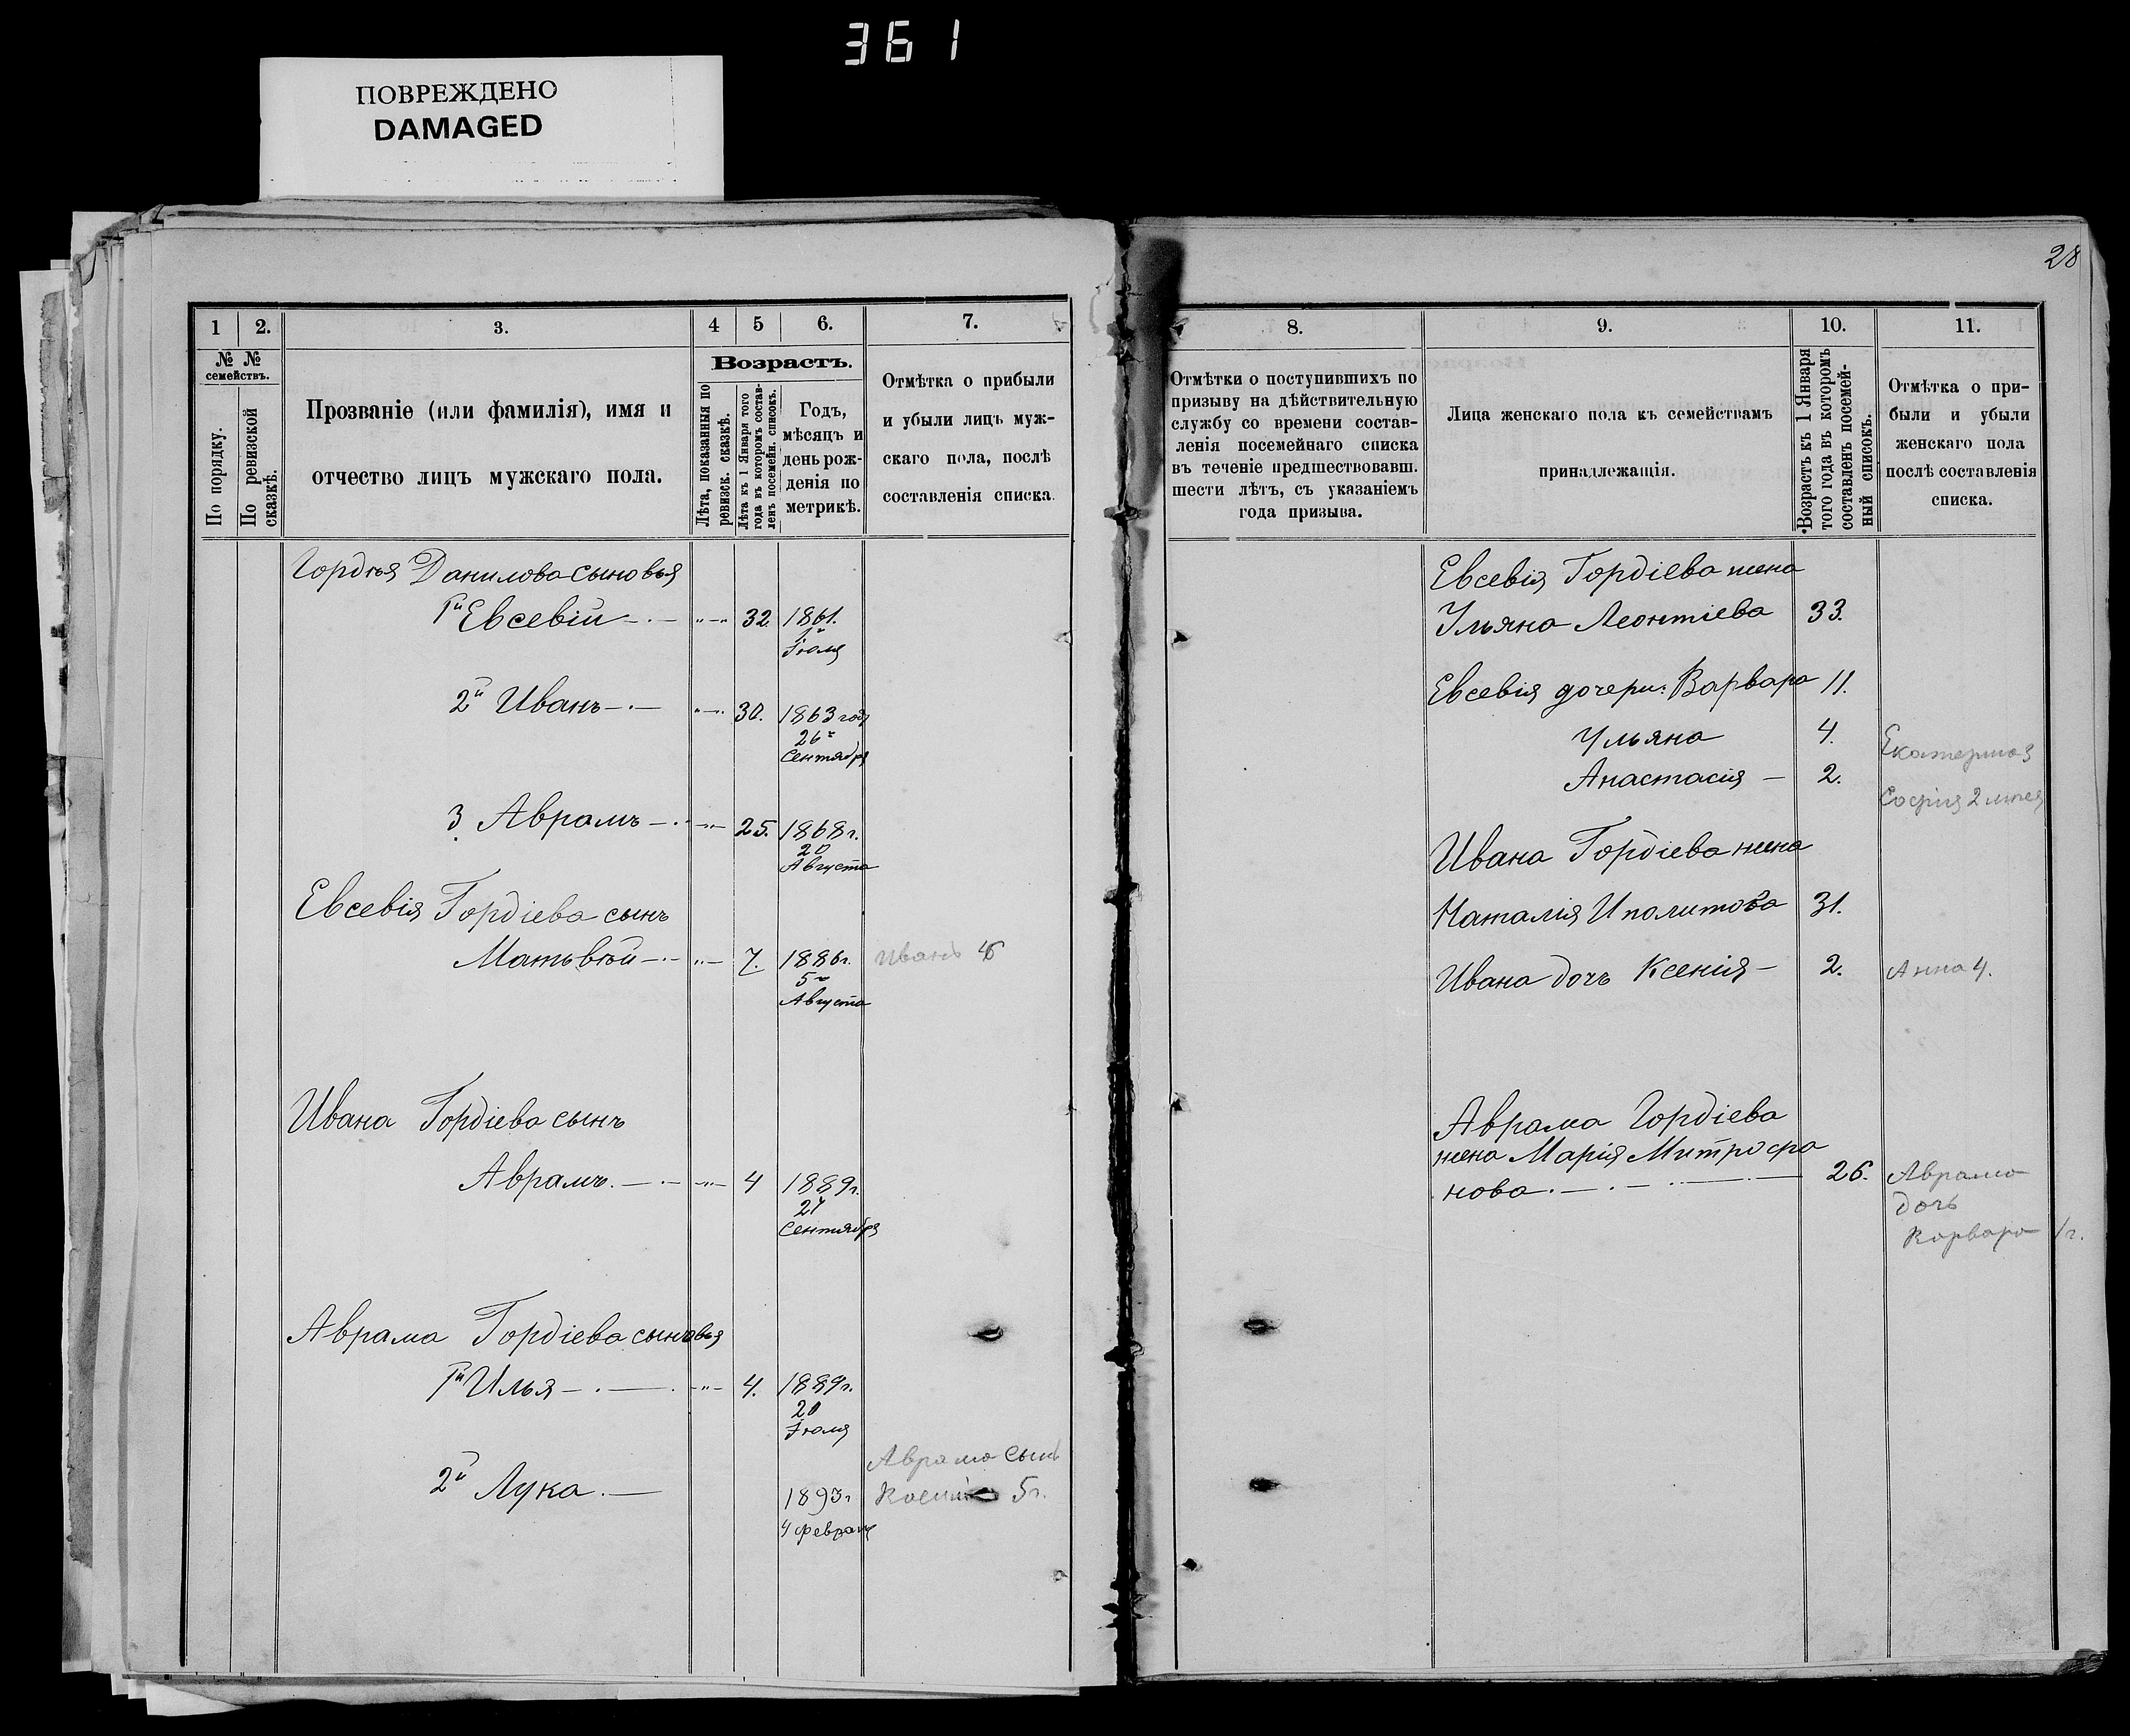 361
ПОВРЕЖДЕНО
DAMAGED
28
1
2.
3.
4
5
6.
7.
№ №
семействъ.
По порядку.
По ревизской
сказкѣ.
Прозваніе (или фамилія), имя и
отчество лицъ мужскаго пола.
Возрастъ.
Лѣта, показанныя по
ревизск. сказкѣ.
Лѣта къ 1 Января того
года въ которомъ состав-
ленъ посемейн. списокъ.
Годъ,
мѣсяцъ и
день рож-
денія по
метрикѣ.
Отмѣтка о прибыли
и убыли лицъ муж-
скаго пола, послѣ
составленія списка.
Гордѣя Данилова сыновья
1й Евсевій 32. 1861.
1го
Іюля
2й Иванъ 30. 1863 года
26го
Сентября
3. Аврамъ 25. 1868 г.
20
Августа
Евсевія Гордіева сынъ
Матьвѣй 7. 1886 г. Иванъ
5го
Августа
Ивана Гордіева сынъ
Аврамъ 4 1889 г.
27
Сентября
Аврама Гордіева сыновья
1й Илья 4. 1889 г.
20
Іюля
Аврама сынъ
2й Лука 1893 г. 5 г.
4 февраля
8.
9.
10.
11.
Отмѣтки о поступившихъ по
призыву на дѣйствительную
службу со времени состав-
ленія посемейнаго списка
въ теченіе предшествовавш.
шести лѣтъ, съ указаніемъ
года призыва.
Лица женскаго пола къ семействамъ
принадлежащія.
Возрастъ къ 1 Января
того года въ которомъ
составленъ посемей-
ный списокъ.
Отмѣтка о при-
были и убыли
женскаго пола
послѣ составленія
списка.
Евсевія Гордіева жена
Ульяна Леонтіева 33.
Евсевія дочери: Варвара 11.
Ульяна 4.
Екатерина 3
Анастасія 2.
Софія 2
Ивана Гордіева жена
Наталія Иполитова 31.
Ивана дочь Ксенія 2. Анна 4.
Аврама Гордіева
жена Марія Митрофа
нова 26. Аврама
дочь
Варвара 1 г.